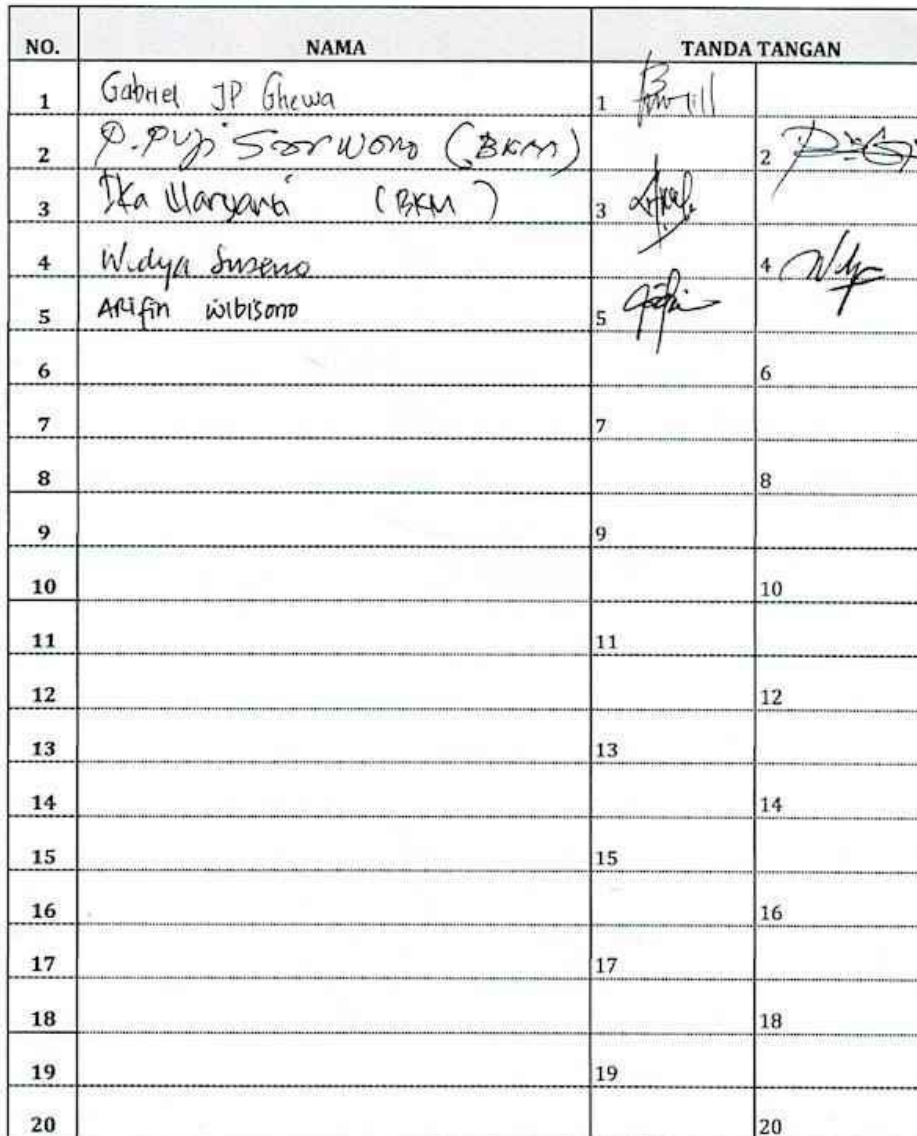 NO. NAMA TANDA TANGAN
1 Gabriel JP Ghewa 1
2 P. Puji Sarwono (BKM) 2
3 Ika Maryani (BKM) 3
4 Widya Suseno 4
5 ARifin wibisono 5
6 6
7 7
8 8
9 9
10 10
11 11
12 12
13 13
14 14
15 15
16 16
17 17
18 18
19 19
20 20